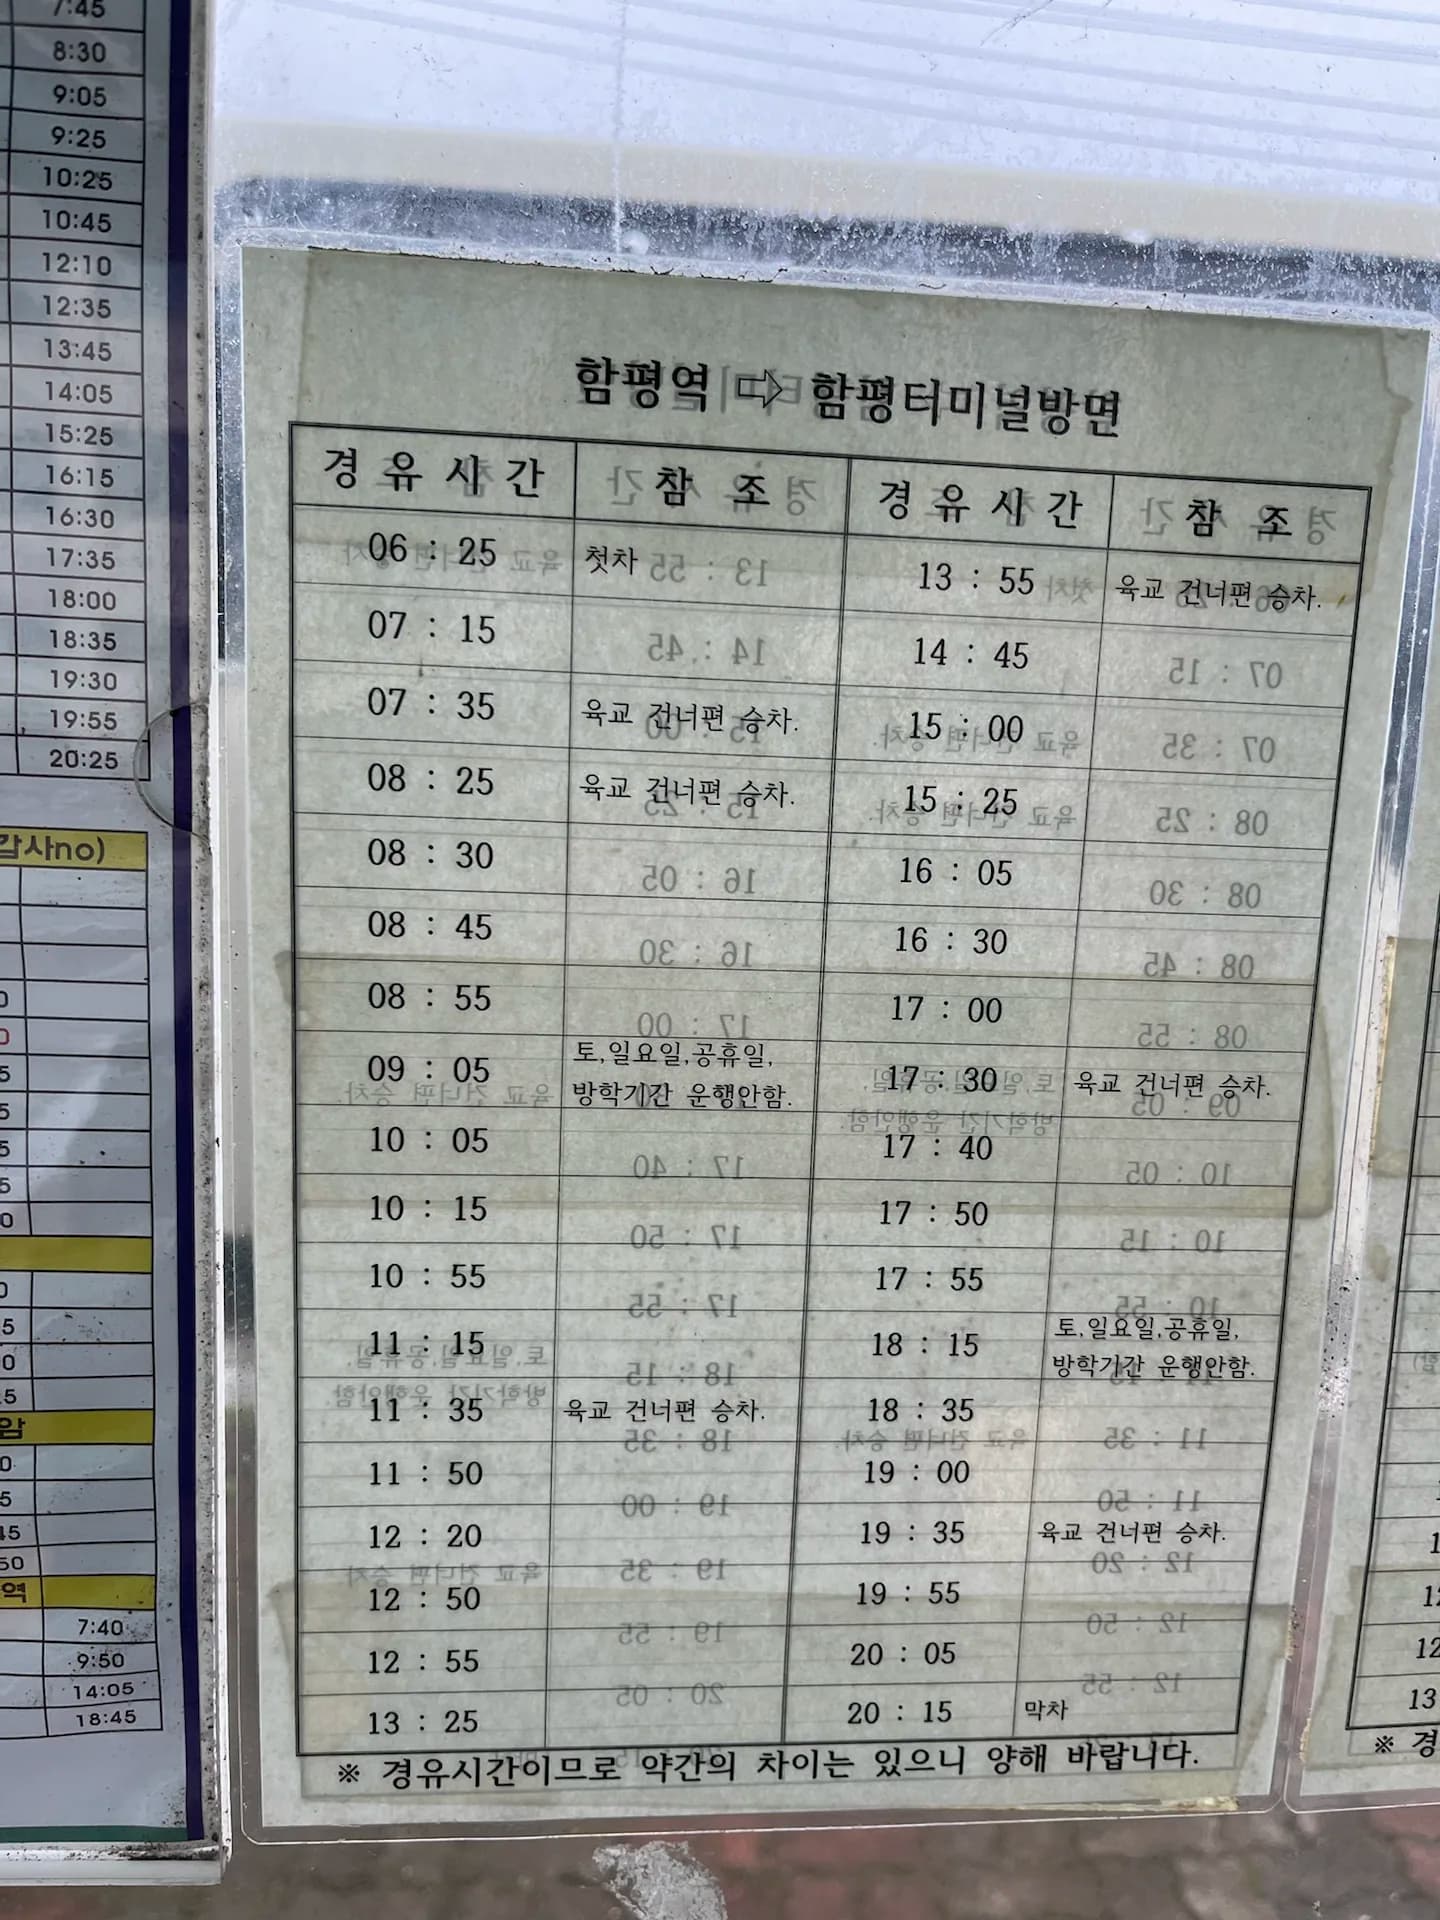 7:45
8:30
9:05
9:25
10:25
10:45
12:10
12:35
13:45
14:05
15:25
16:15
16:30
17:35
18:00
18:35
19:30
19:55
20:25
갑사no)
암
역
7:40
9:50
14:05
18:45
함평역 ⇨ 함평터미널방면
경유시간 참 조 경유시간 참 조
06 : 25 첫차 13 : 55 육교 건너편 승차.
07 : 15 14 : 45
07 : 35 육교 건너편 승차. 15 : 00
08 : 25 육교 건너편 승차. 15 : 25
08 : 30 16 : 05
08 : 45 16 : 30
08 : 55 17 : 00
09 : 05 토,일요일,공휴일, 방학기간 운행안함. 17 : 30 육교 건너편 승차.
10 : 05 17 : 40
10 : 15 17 : 50
10 : 55 17 : 55
11 : 15 18 : 15 토,일요일,공휴일, 방학기간 운행안함.
11 : 35 육교 건너편 승차. 18 : 35
11 : 50 19 : 00
12 : 20 19 : 35 육교 건너편 승차.
12 : 50 19 : 55
12 : 55 20 : 05
13 : 25 20 : 15 막차
※ 경유시간이므로 약간의 차이는 있으니 양해 바랍니다.
※ 경